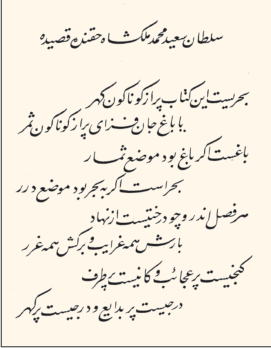 سلطان سعید محمد ملکشاه حقنده قصیده
بحریست این کتاب پر از کوناکون کهر
یا باغ جان فزای پر از کوناکون ثمر
باغست اکر باغ بود موضع ثمار
بحر است اکر به بحر بود موضع درر
هر فصل اندر وجود ختیست از نهاد
بارش همه غرایب و برکش همه غرر
کنجیست پر عجائب و کانیست پر طرف
درجیست پر بدایع و درجیست پر کهر